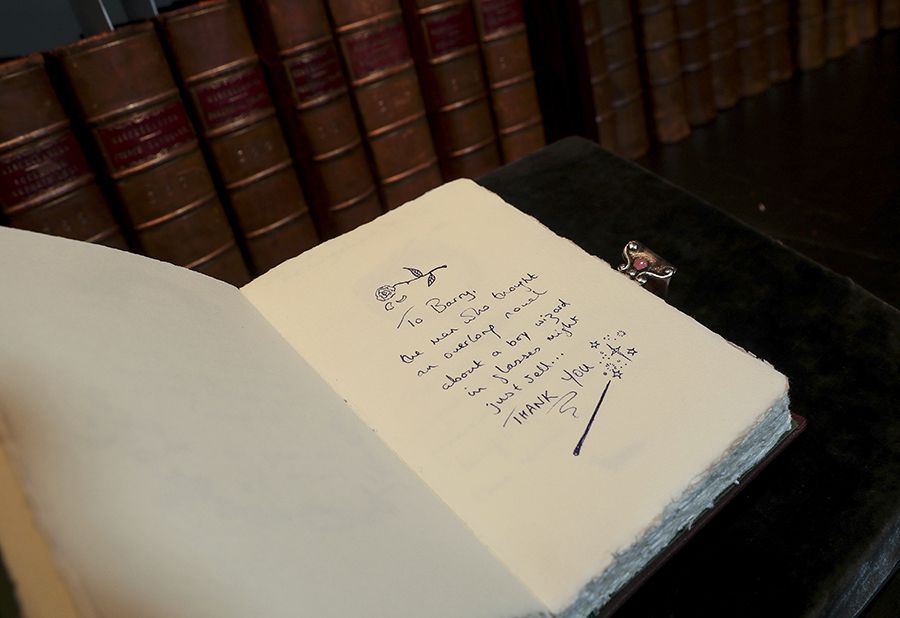 To Barry,
the man who thought
an overlong novel
about a boy wizard
in glasses might
just sell...
THANK YOU